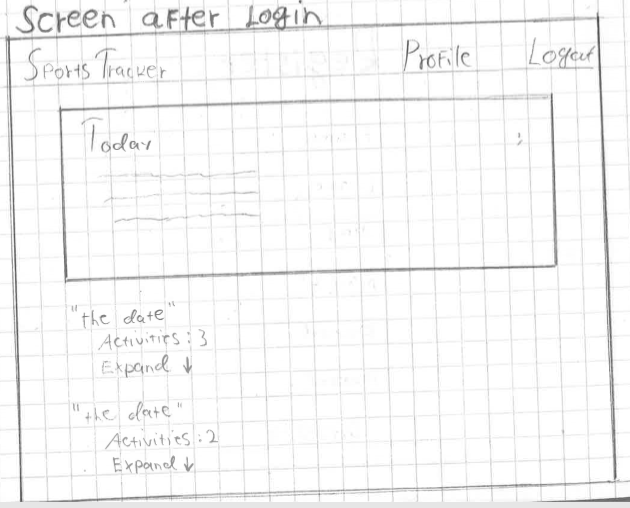 Screen after Login
Sports Tracker Profile Logout
Today
"the date"
Activities: 3
Expand ↓
"the date"
Activities: 2
Expand ↓